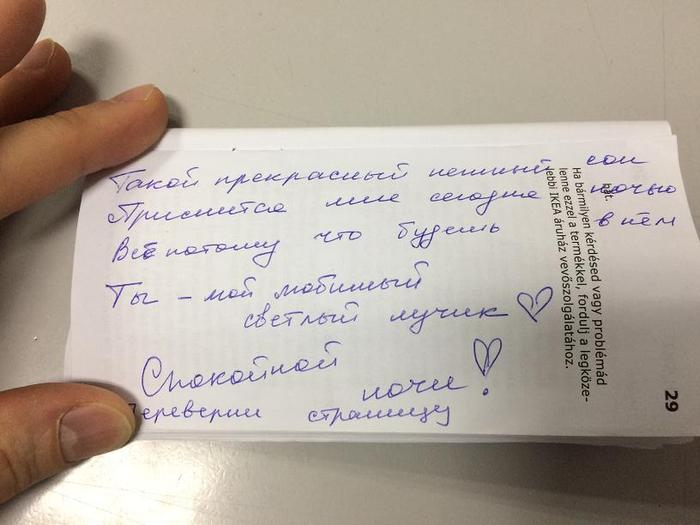 Такой прекрасный нежный сон
Приснится мне сегодня ночью
Всё потому что будешь в нём
Ты - мой любимый
светлый лучик
Спокойной
ночи!
Переверни страницу
hat.
Ha bármilyen kérdésed vagy problémád
lenne ezzel a termékkel, fordulj a legköze-
lebbi IKEA áruház vevőszolgálatához.
29